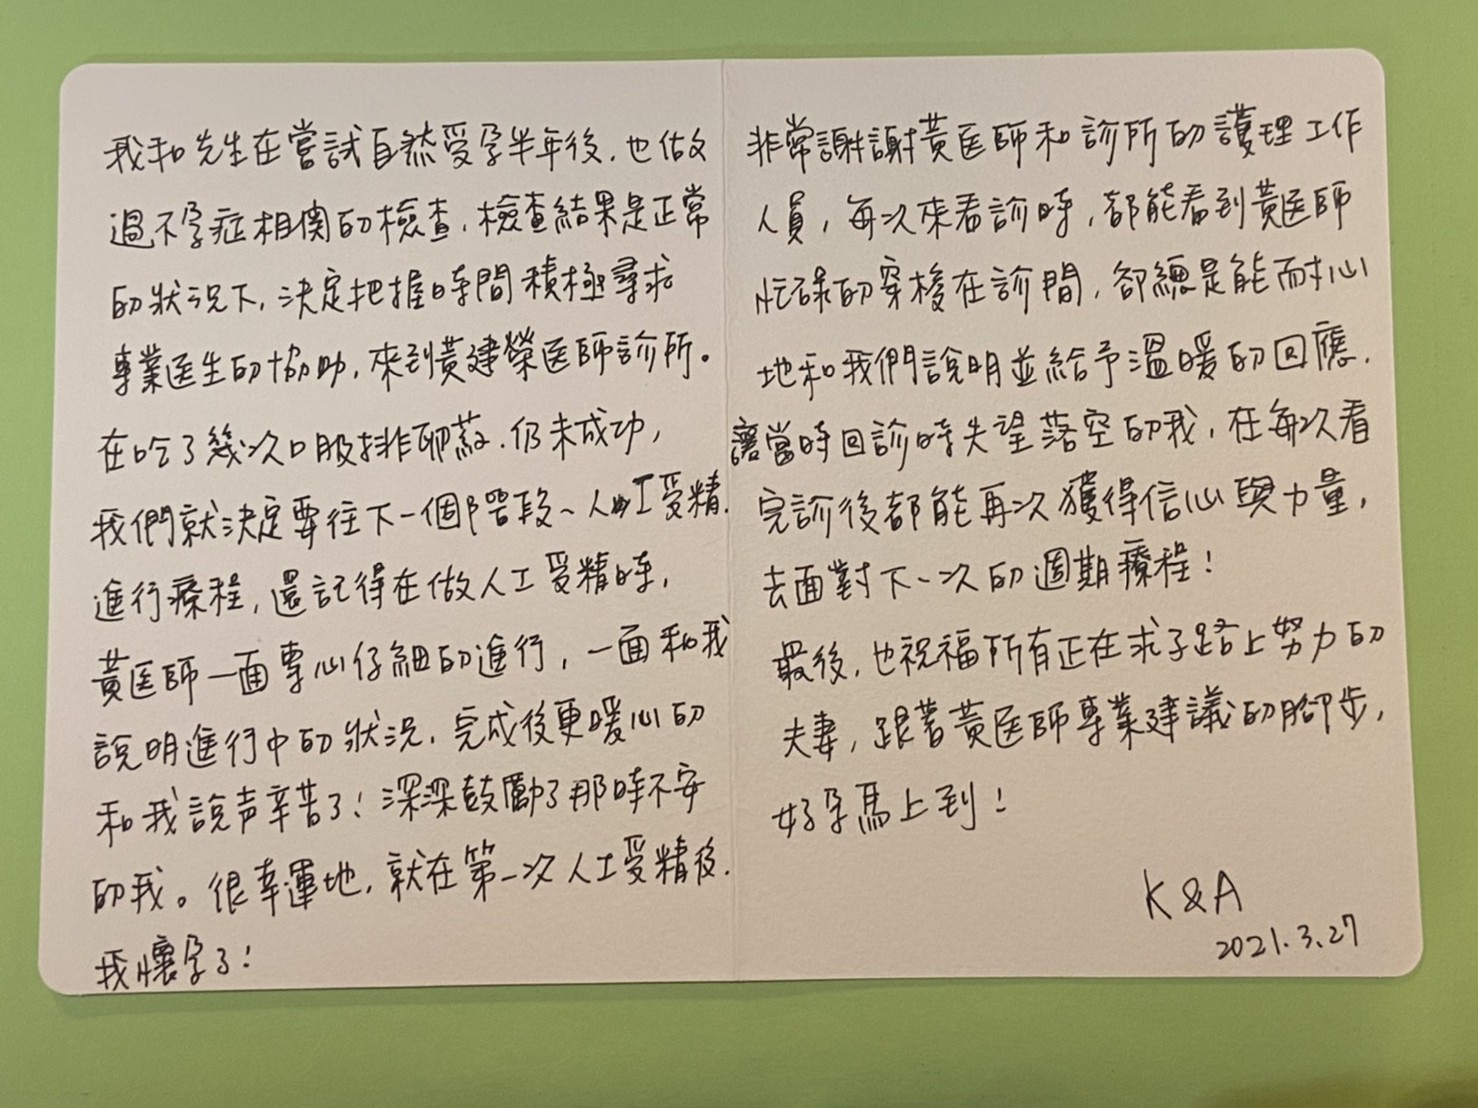 我和先生在嘗試自然受孕半年後，也做
過不孕症相関的檢查，檢查結果是正常
的狀況下，決定把握時間積極尋求
專業医生的協助，來到黃建榮医師診所。
在吃了幾次口服排卵藥，仍未成功，
我們就決定要往下一個階段~人工受精，
進行療程，還記得在做人工受精時，
黃医師一面專心仔細的進行，一面和我
說明進行中的狀況，完成後更暖心的
和我說声辛苦了！深深鼓勵了那時不安
的我。很幸運地，就在第一次人工受精後，
我懷孕了！
非常謝謝黃医師和診所的護理工作
人員，每次來看診時，都能看到黃医師
忙碌的穿梭在診間，卻總是能耐心
地和我們說明並給予溫暖的回應，
讓當時回診時失望落空的我，在每次看
完診後都能再次獲得信心與力量，
去面對下一次的週期療程！
最後，也祝福所有正在求子路上努力的
夫妻，跟著黃医師專業建議的腳步，
好孕馬上到！
K & A
2021.3.27